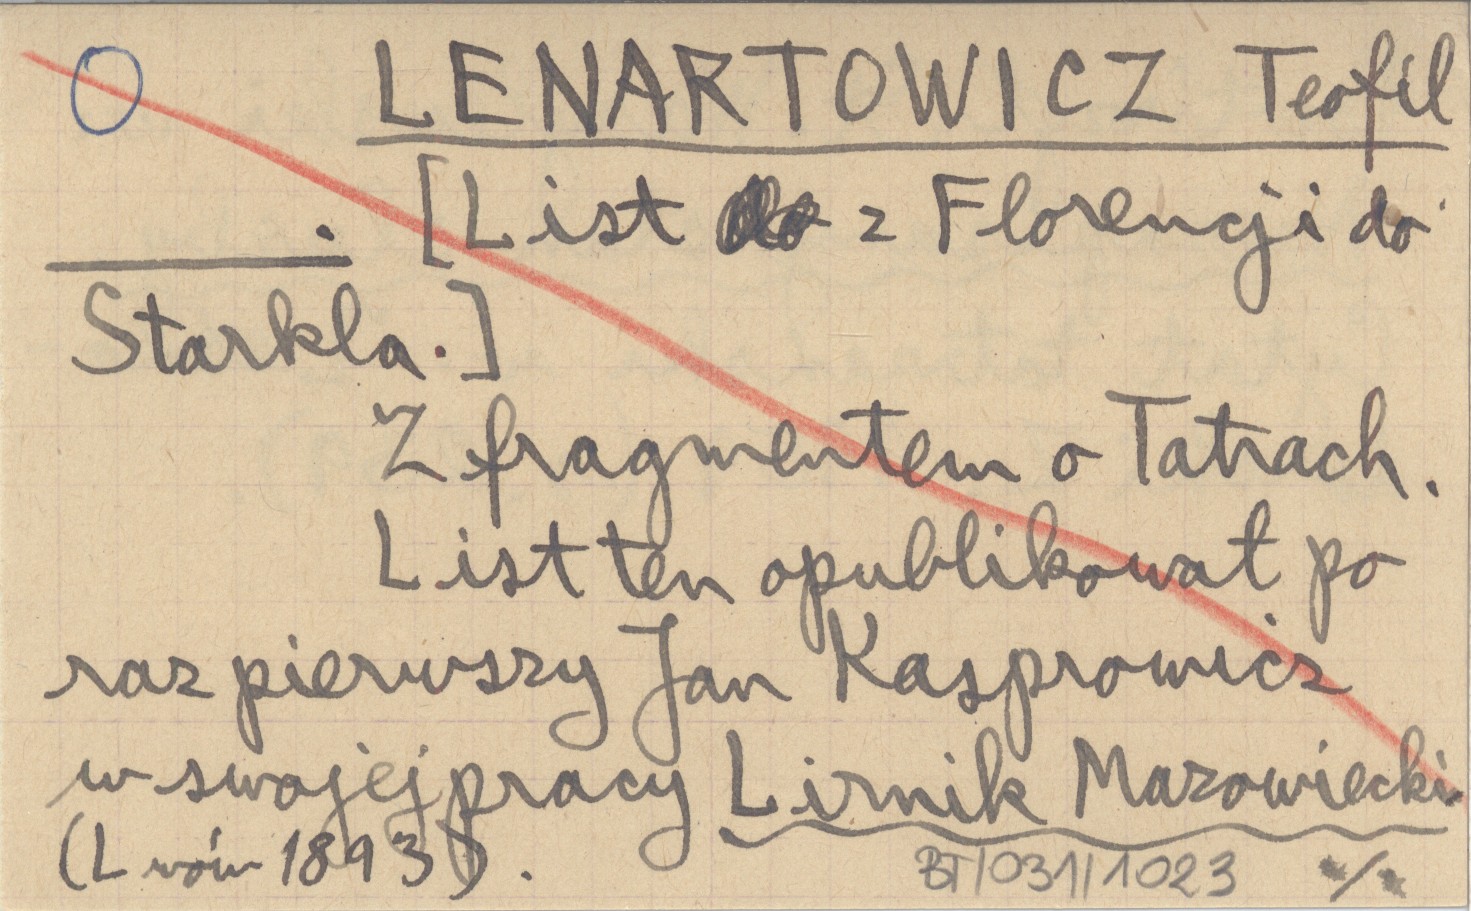 O LENARTOWICZ Teofil
. [List z Florencji do
Starkla.]
Z fragmentem o Tatrach.
List ten opublikował po
raz pierwszy Jan Kasprowicz
w swojej pracy Lirnik Mazowiecki
(Lwów 1893).
BT/031/1023 */*